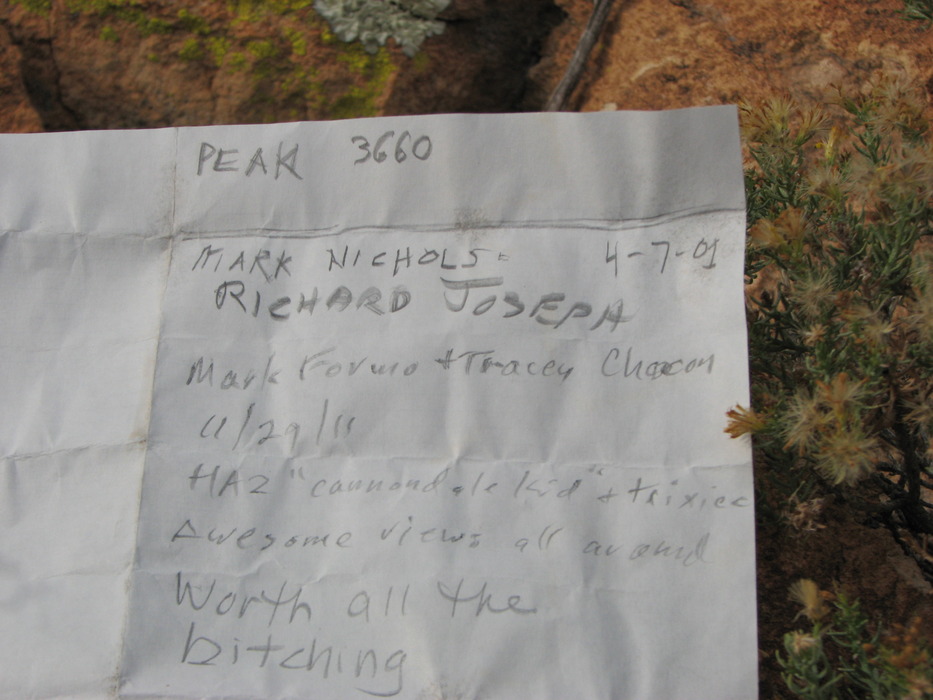 PEAK 3660
MARK NICHOLS 4-7-01
RICHARD JOSEPH
Mark Formo + Tracey Chacon
11/29/11
HAZ "cannondale kid" + trixiee
Awesome views all around
Worth all the
bitching